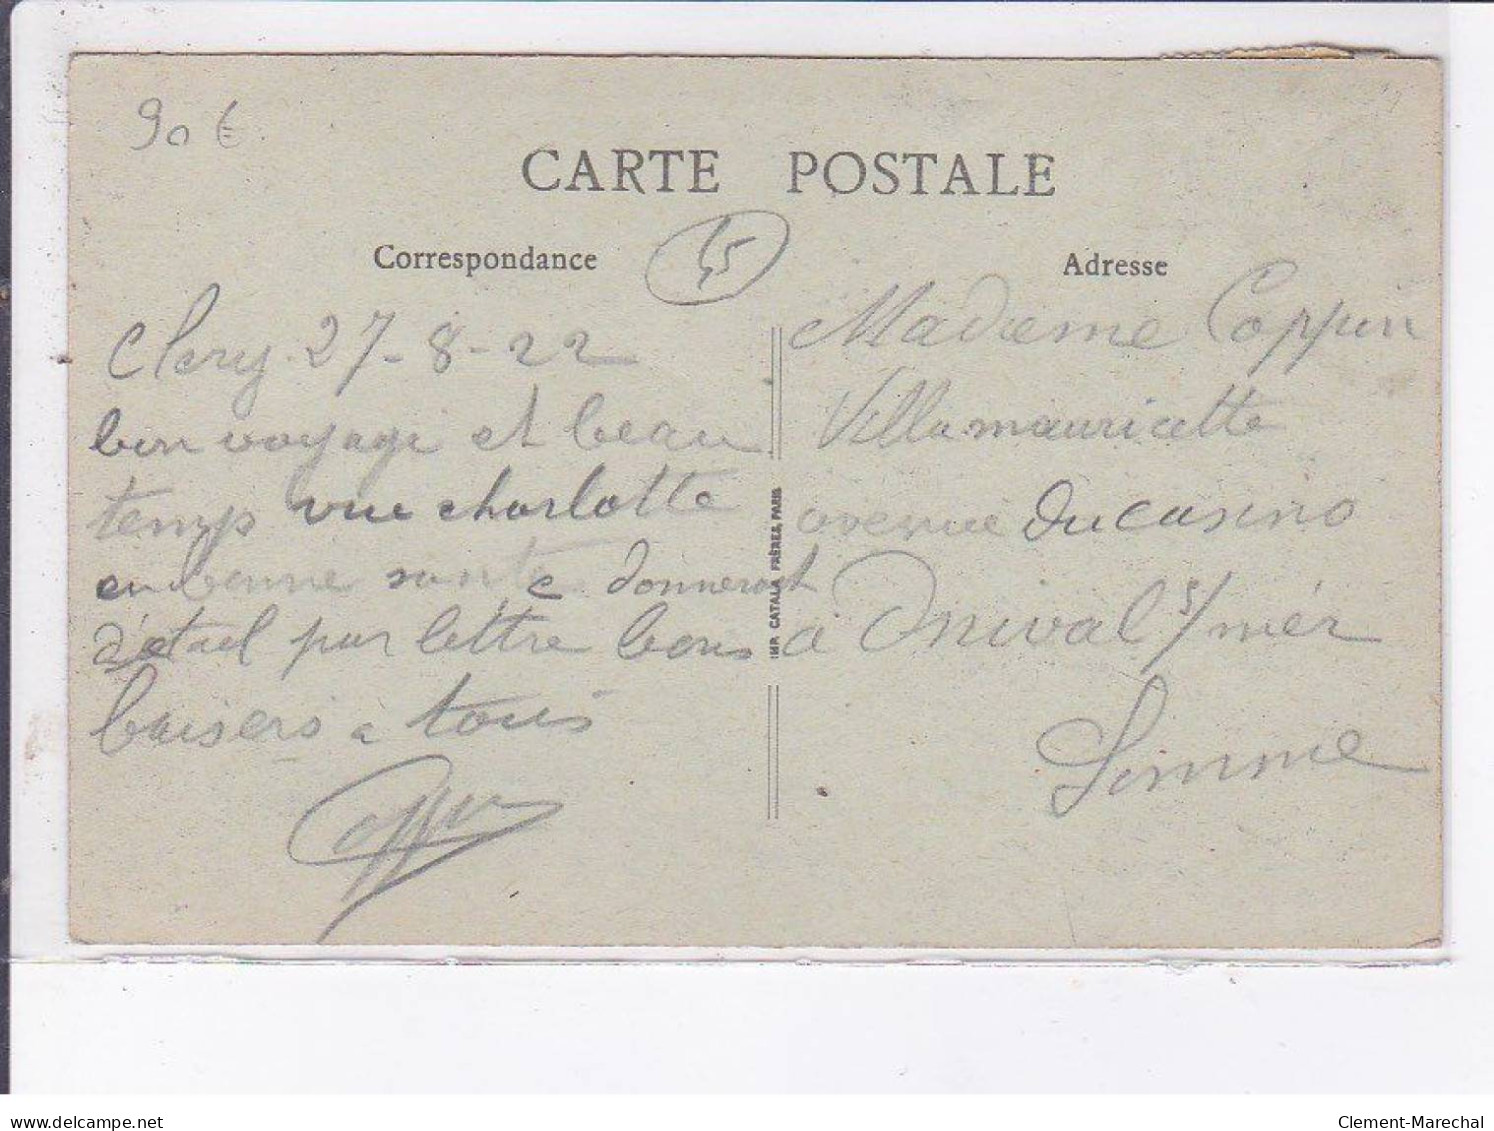 90 €
CARTE POSTALE
Correspondance
45
Adresse
Clery 27-8-22
bon voyage et beau
temps vue charlotte
en bonne santé donnerait
détail par lettre bons
baisers à tous
Coppin
Madame Coppin
Villa mauricette
avenue du casino
à Onival s/mér
Somme
IMP. CATALA FRÈRES, PARIS
delcampe.net
Clement-Marechal